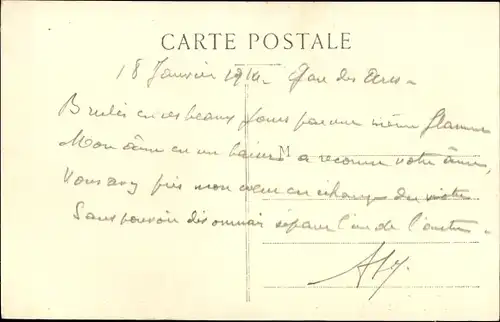 CARTE POSTALE
18 Janvier 1914 - Gare des
Brulés en ces beaux jours par une même flamme
Mon âme en un baiser a reconnu votre âme,
M
Vous avez pris mon cœur en échange du vôtre
Sans pouvoir désormais séparer l'un de l'autre -